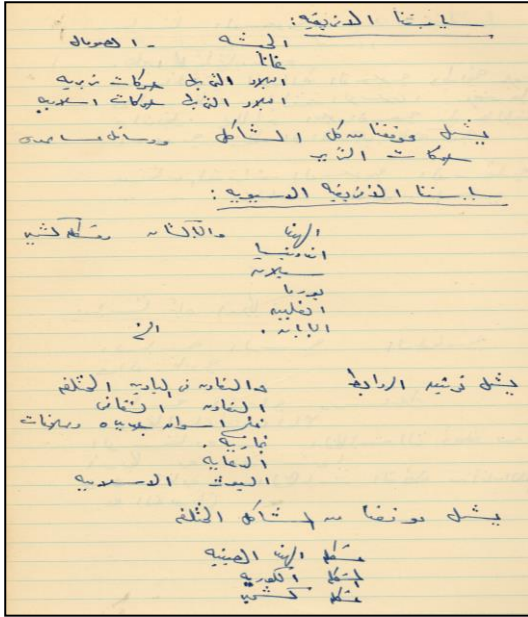 سياستنا الافريقيه :
الحبشه - الصومال
غانا
البلاد التى بها حركات تحرريه
البلاد التى بها حركات اسلاميه
يشمل موقفنا من كل المشاكل ووسائل مساعدة
حركات التحرير
سياستنا الافريقيه الاسيويه :
الهند والباكستان ومشكله كشمير
اندونيسيا
سيلان
بورما
الفلبين
اليابان . الخ
يشمل توثيق الروابط والتعاون فى الميادين المختلفه
التعاون الثقافى
فتح اسواق جديده ومعاهدات
تجاريه .
الدعايه
البعوث الاسلاميه
يشمل موقفنا من المشاكل المختلفه
مشكله الهند الصينيه
المشكله الكوريه
مشكله كشمير